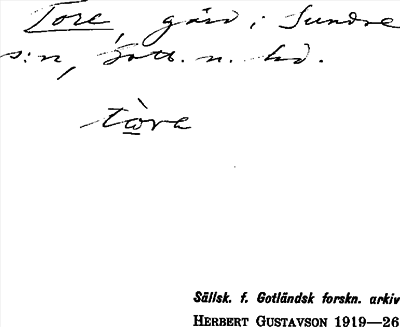 Tore, gård i Sundre
s:n, Gotl. n. hd.
tòre
Sällsk. f. Gotländsk forskn. arkiv
HERBERT GUSTAVSON 1919—26